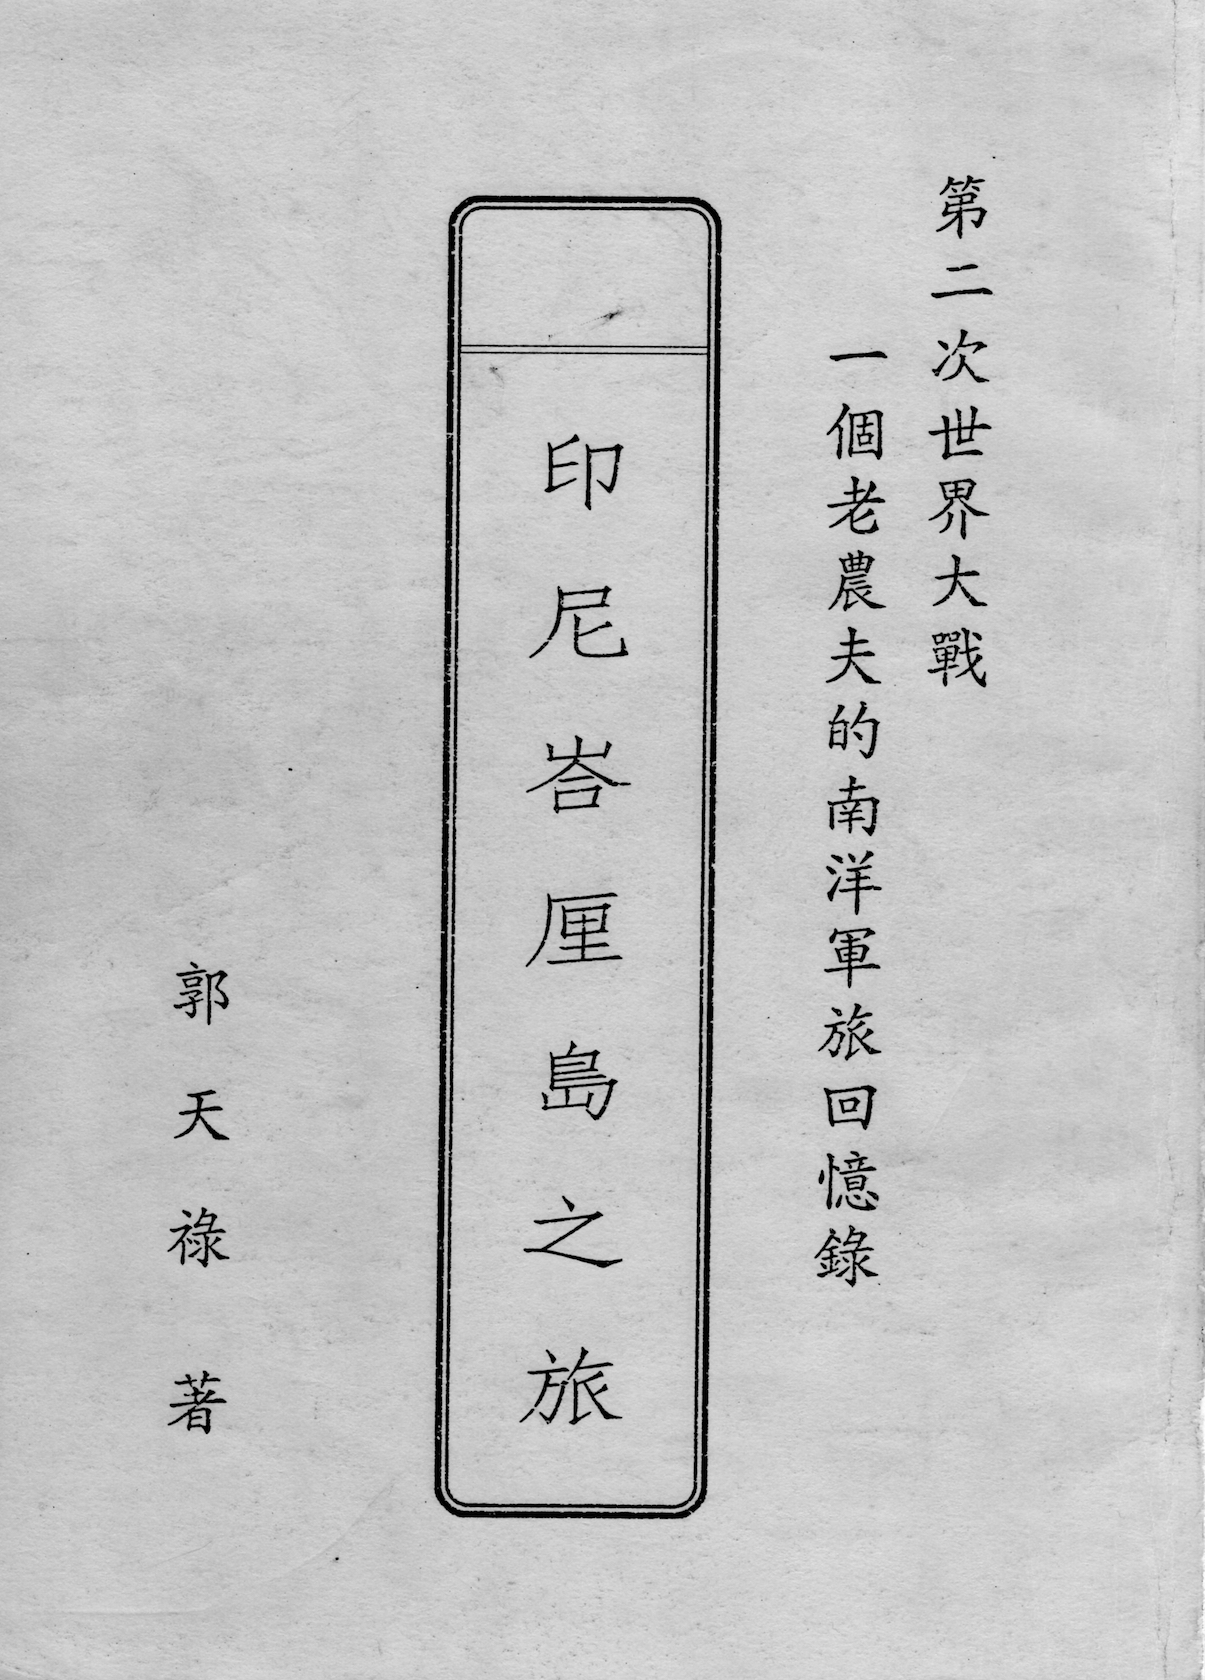 第二次世界大戰
一個老農夫的南洋軍旅回憶錄
印尼峇厘島之旅
郭天祿 著